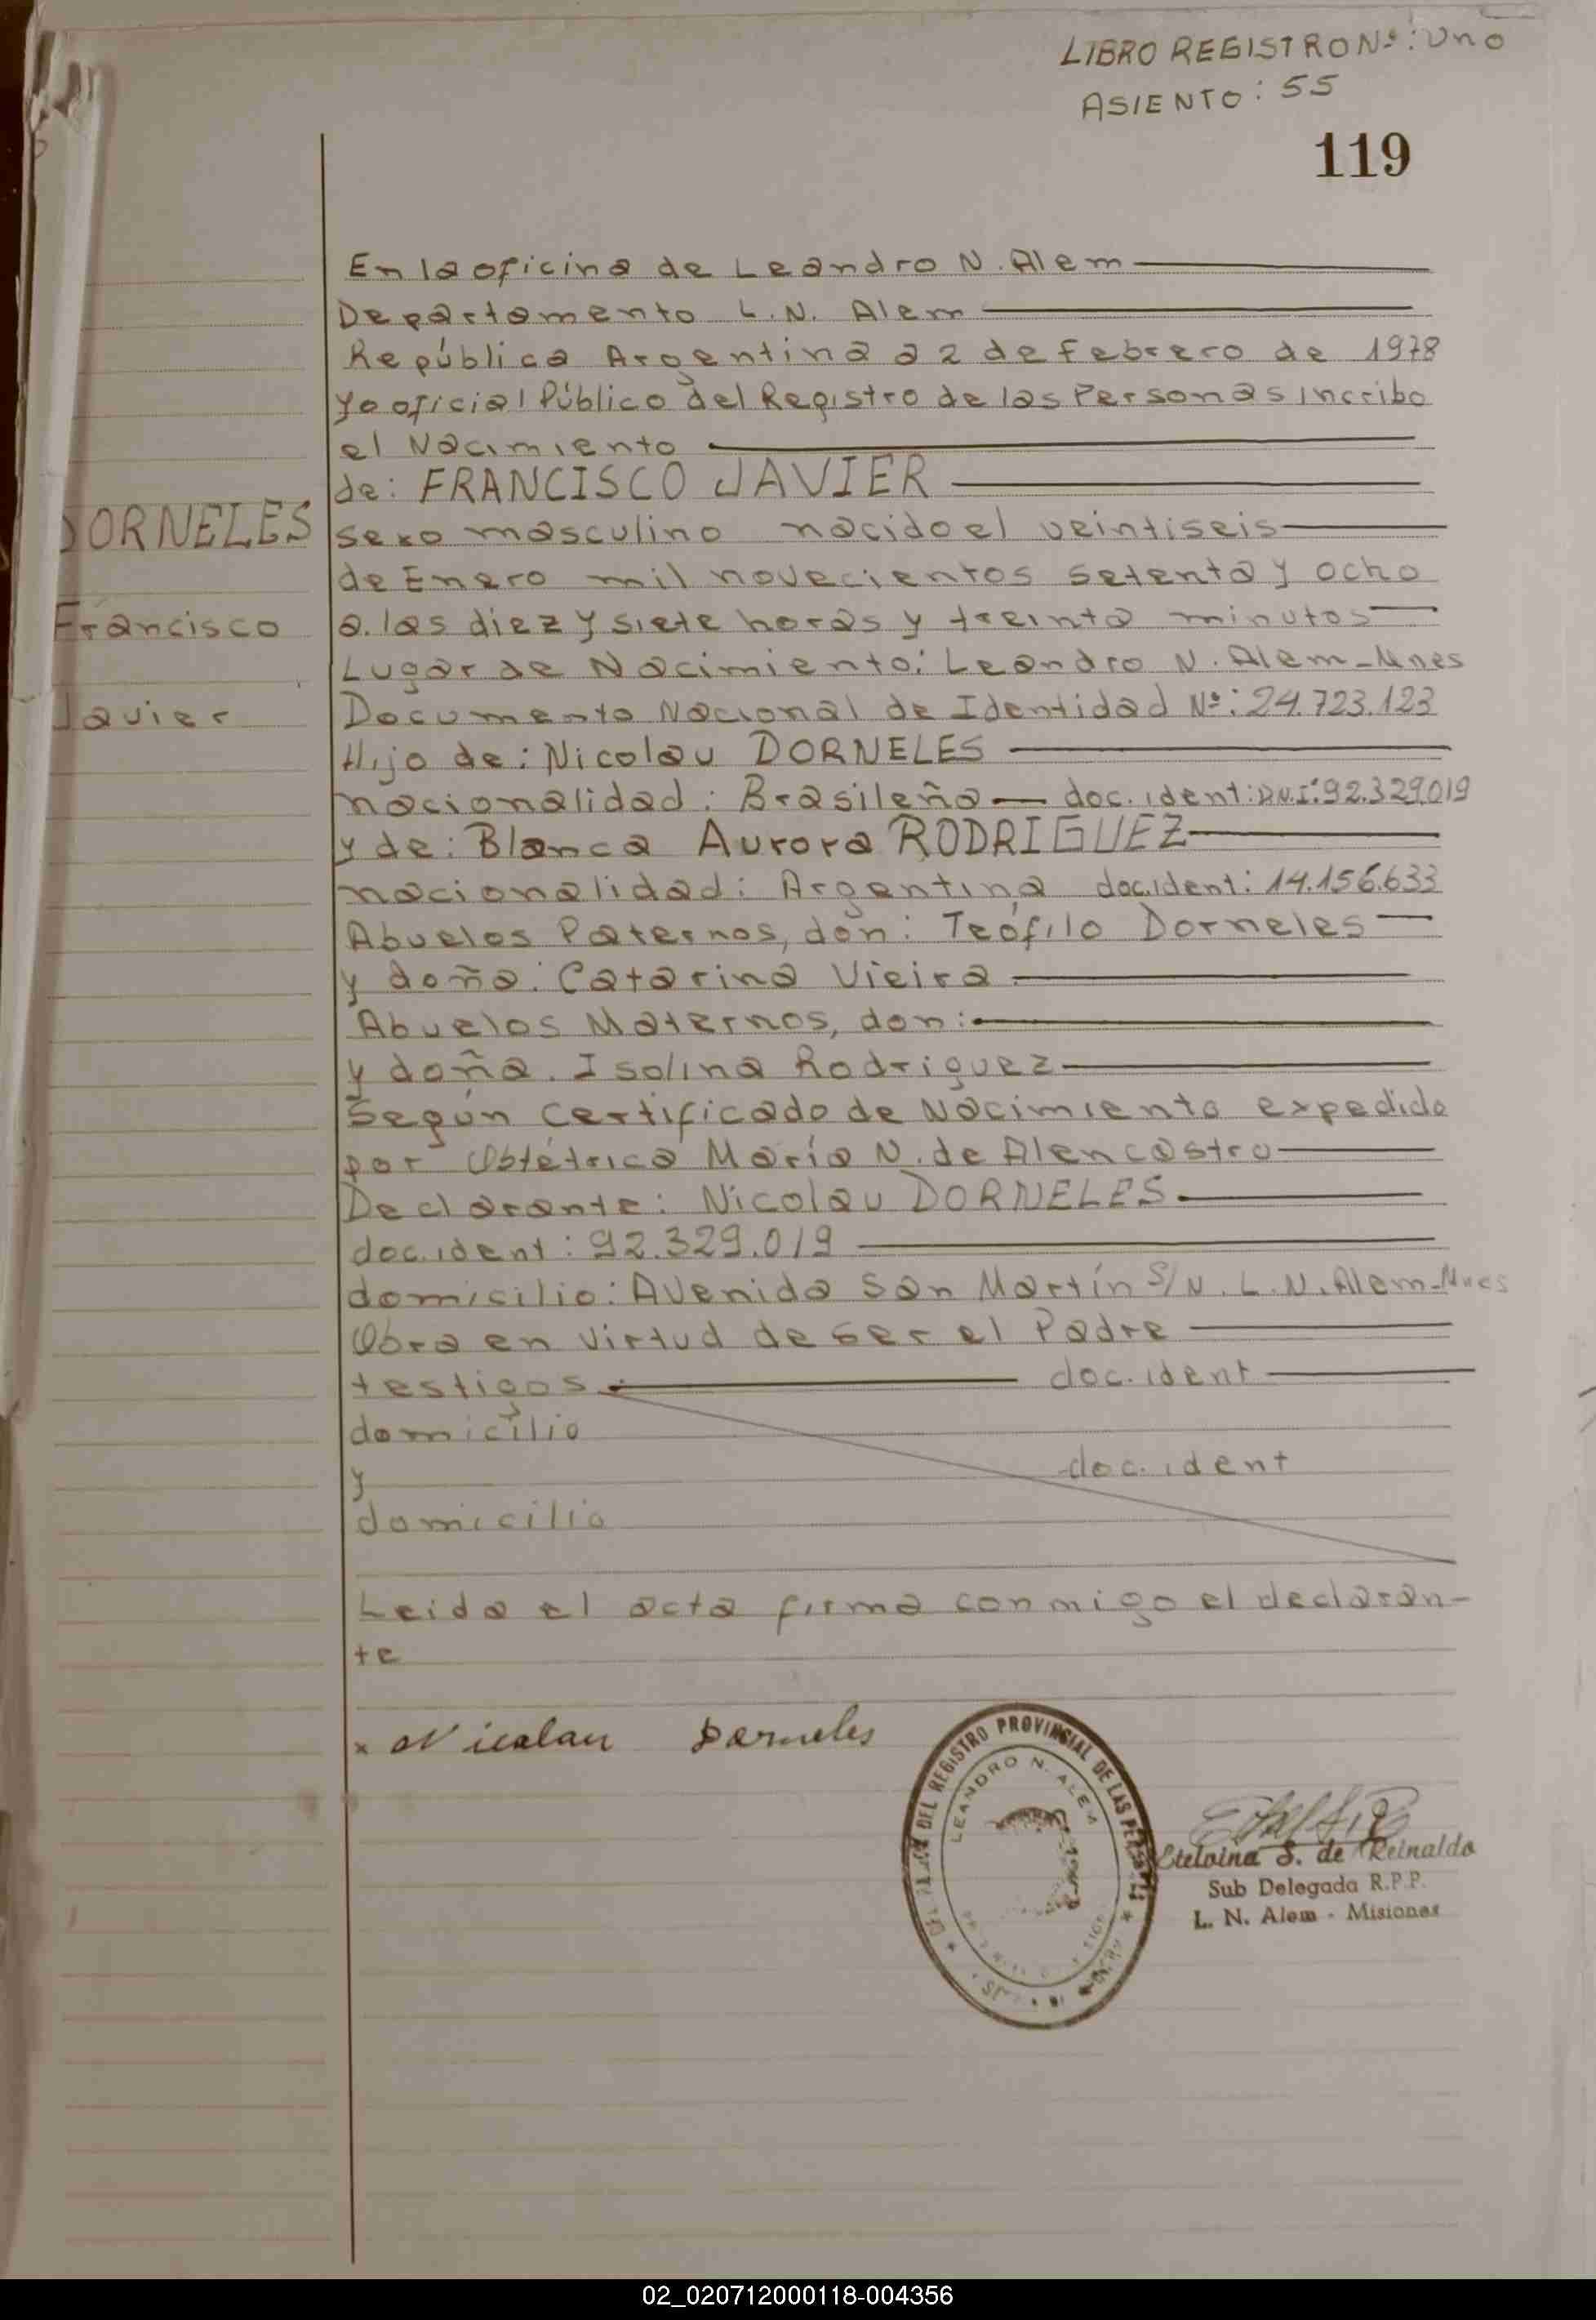 LIBRO REGISTRO Nº: Uno
ASIENTO: 55
119
En la oficina de Leandro N. Alem
Departamento L.N. Alem
República Argentina a 2 de Febrero de 1978
yo oficial Público del Registro de las Personas Inscribo
el Nacimiento
de: FRANCISCO JAVIER
DORNELES
sexo masculino nacido el veintiseis
de Enero mil novecientos setenta y ocho
Francisco
a. las diez y siete horas y treinta minutos
Lugar de Nacimiento: Leandro N. Alem-Mnes
Javier
Documento Nacional de Identidad Nº: 24.723.123
Hijo de: Nicolau DORNELES
nacionalidad: Brasileña doc. ident: D.N.I: 92.329.019
y de: Blanca Aurora RODRIGUEZ
nacionalidad: Argentina doc.ident: 14.156.633
Abuelos Paternos, don: Teófilo Dorneles
y doña: Catarina Vieira
Abuelos Maternos, don:
y doña. Isolina Rodriguez
Según certificado de Nacimiento expedido
por Obtétrica María N. de Alencastro
Declarante: Nicolau DORNELES
doc.ident: 92.329.019
domicilio: Avenida San Martín S/N. L.N. Alem-Mnes
Obra en virtud de ser el Padre
testigos doc. ident
domicilio
y doc. ident
domicilio
Leida el acta firma conmigo el declaran-
te
x Nicolau Dorneles
DEL REGISTRO PROVINCIAL DE LAS PERSONAS
LEANDRO N. ALEM
Etelvina S. de Reinaldo
Sub Delegada R.P.P.
L. N. Alem - Misiones
02_020712000118-004356